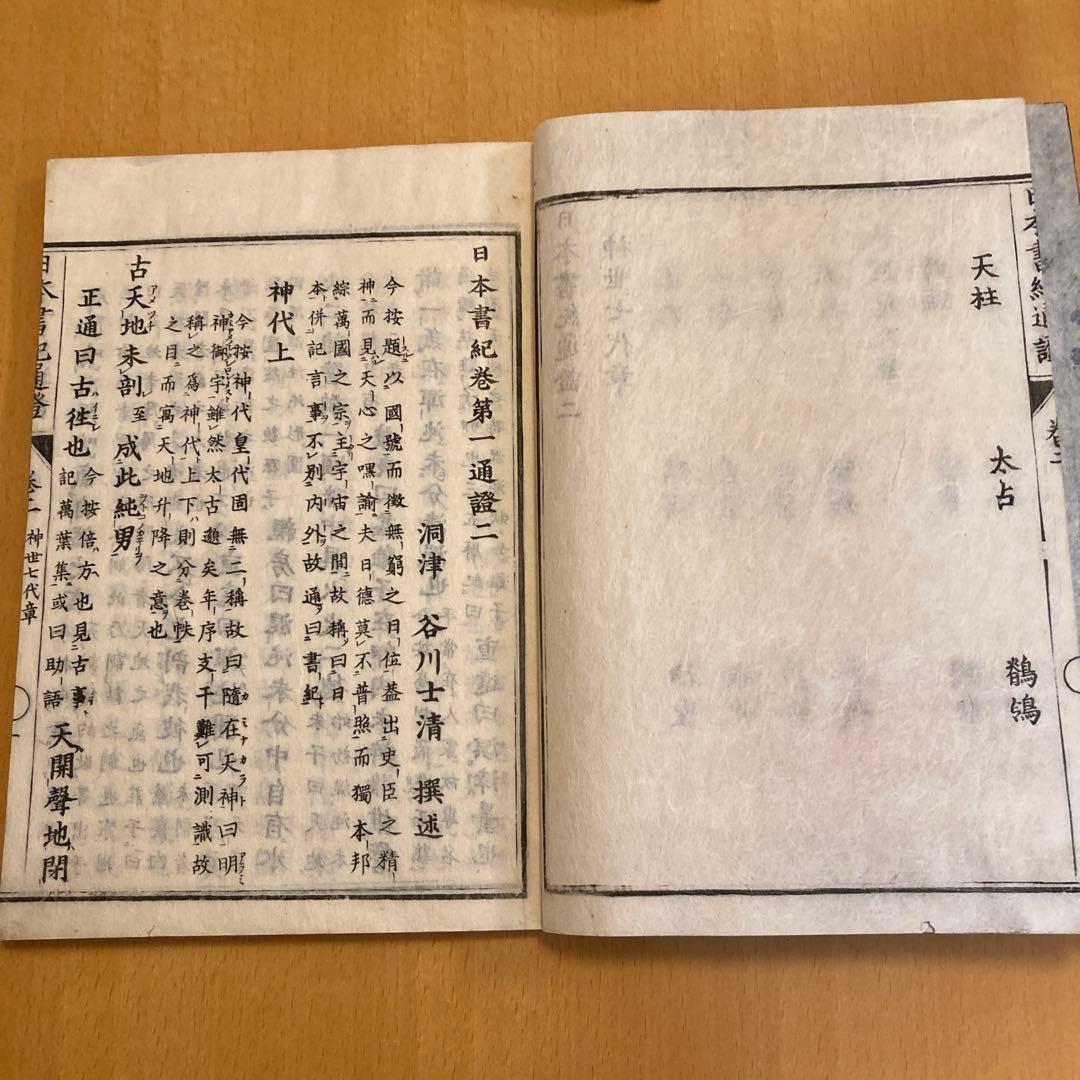 日本書紀通證
卷二
天柱
太占
鶺鴒
日本書紀卷第一通證二
洞津 谷川士清 撰述
今按題以國號而徴無窮之日位葢出史臣之精
神而見天心之嘿諭夫日德莫不普照而獨本邦
綜萬國之宗主宇宙之間故稱曰日
本併記言事不別内外故通曰書紀
神代上
今按神代皇代固無二稱故曰隨在天神曰明
神御宇雖然太古邈矣年序支干難可測識故
稱之爲神代上下則分卷帙
之目而寓天地升降之意也
古天地未剖至成此純男
正通曰古徃也今按倍方也見古事
記萬葉集或曰助語天開聲地閉
日本書紀通證
卷二
神世七代章